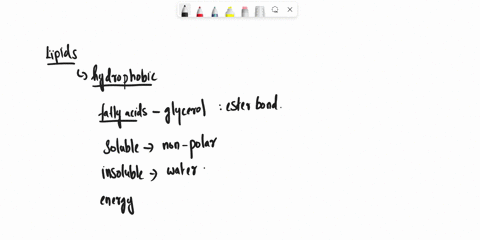 Lipids
↳ hydrophobic
fatty acids - glycerol : ester bond.
Soluble → non-polar
insoluble → water .
energy